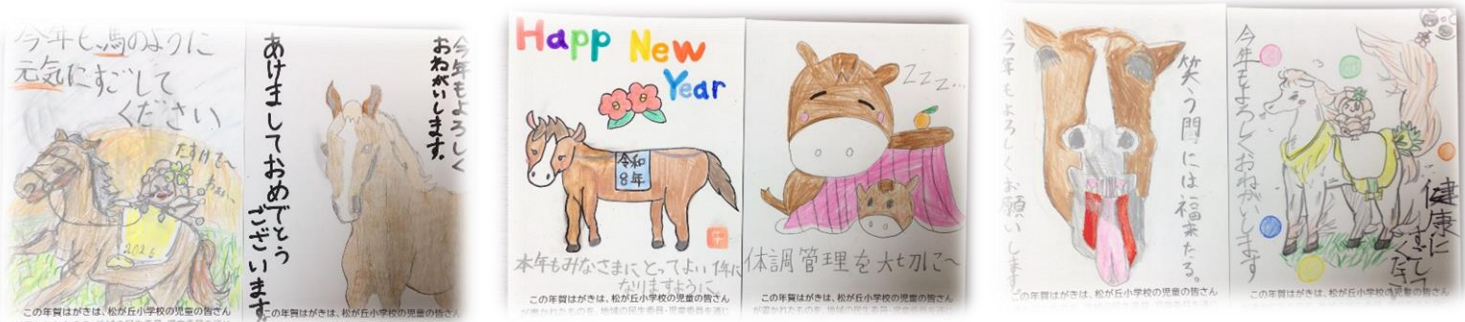 今年も馬のように
元気にすごして
ください
たすけて〜
2026
この年賀はがきは、松が丘小学校の児童の皆さん
今年もよろしく
おねがいします。
あけましておめでとう
ございます。
この年賀はがきは、松が丘小学校の児童の皆さん
Happ New
Year
令和
8年
本年もみなさまにとってよい1年に
なりますように
この年賀はがきは、松が丘小学校の児童の皆さん
が書かれたものを、地域の民生委員・児童委員を通じ
ZZZ...
体調管理を大切に〜
この年賀はがきは、松が丘小学校の児童の皆さん
が書かれたものを、地域の民生委員・児童委員を通じ
笑う門には福来たる。
今年もよろしくお願いします
この年賀はがきは、松が丘小学校の児童の皆さん
今年もよろしくおねがいします
健康に
すごして
ください
この年賀はがきは、松が丘小学校の児童の皆さん